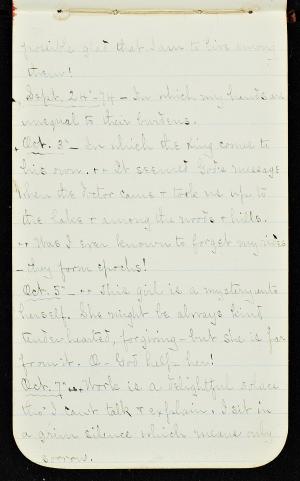 possible glad that I am to live among
them!
Sept. 24"-74 - In which my hands are
unequal to their burdens.
Oct. 3" - In which the king comes to
his own. ++ It seemed God's message
when the Doctor came & took me up to
the lake & among the woods & hills.
++ Was I ever known to forget my rides
- they form epochs!
Oct. 5" - ++ This girl is a mystery unto
herself. She might be always kind
tender hearted, forgiving - but she is far
from it. O- God help her!
Oct. 7" ++ Work is a delightful solace
tho' I can't talk & explain. I sit in
a grim silence which means only
sorrow.